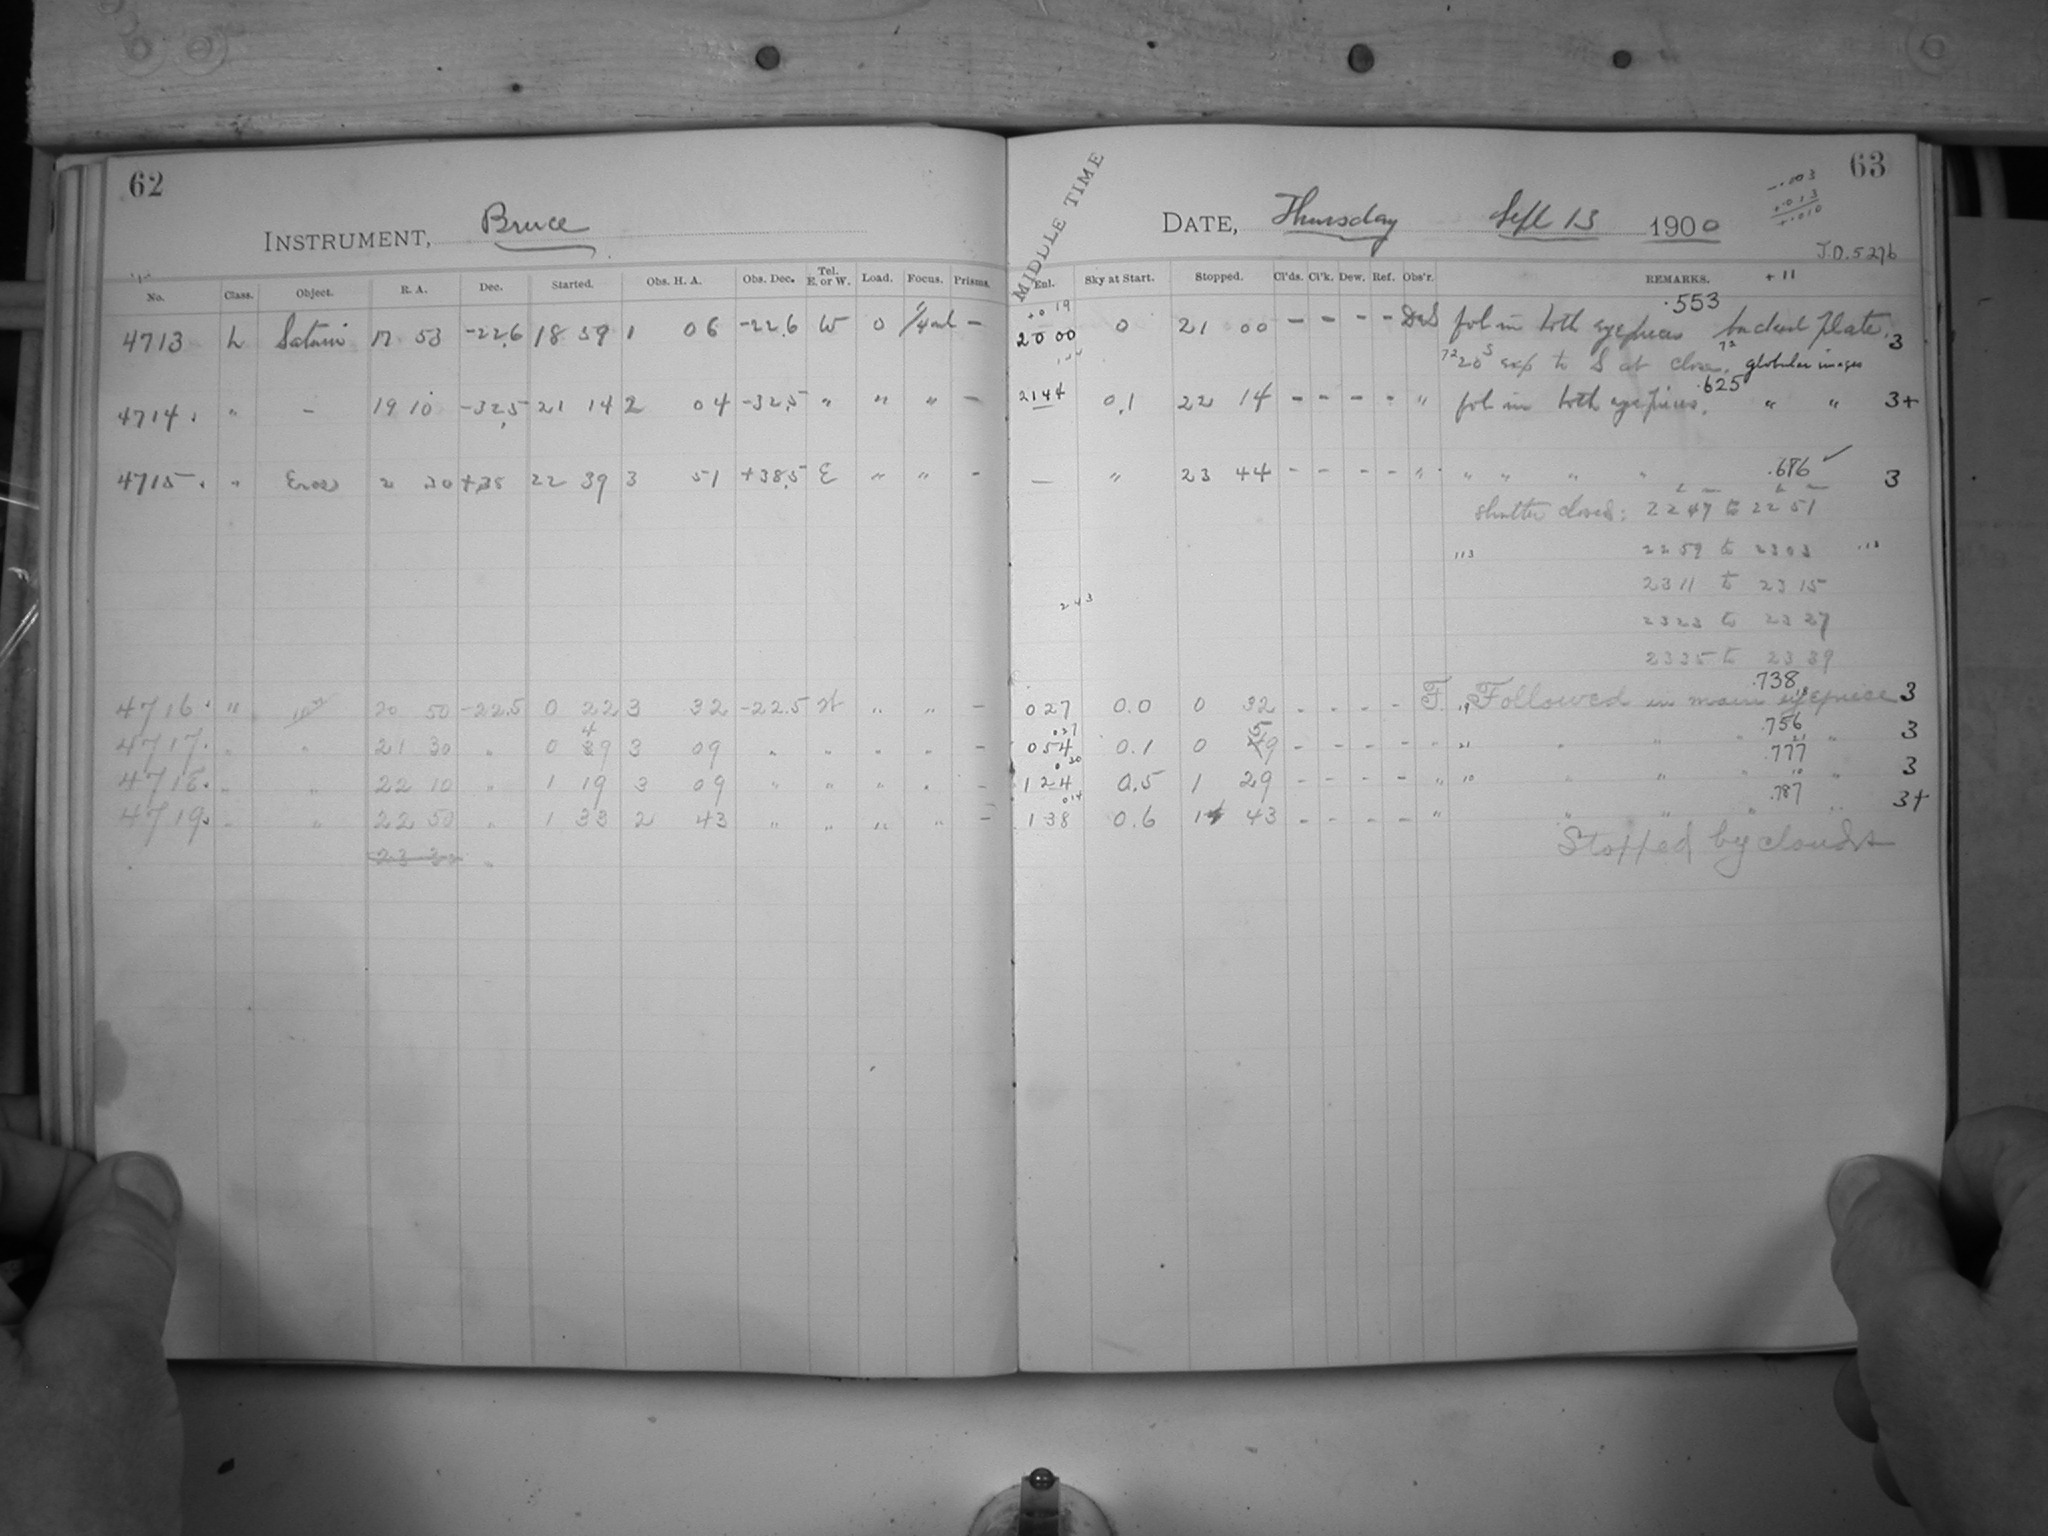 62
INSTRUMENT, Bruce
No. Class. Object. R. A. Dec. Started. Obs. H. A. Obs. Dec. Tel. E. or W. Load. Focus. Prisms.
4713 L Saturn 17 53 -22.6 18 59 1 06 -22.6 W 0 -
4714. " - 19 10 -32.5 21 14 2 04 -32.5 " " " -
4715. " Eros 2 30 +38 22 39 3 51 +38.5 E " " -
4716. " 10m 20 50 -22.5 0 22 3 32 -22.5 W " " -
4717. " " 21 30 " 0 49 3 09 " " " " -
4718. " " 22 10 " 1 19 3 09 " " " " -
4719. " " 22 50 " 1 33 2 43 " " " " -
23 30 "
MIDDLE TIME
63
DATE, Thursday Sept 13 1900
-.003
+.013
+.010
J.D. 5276
Enl. Sky at Start. Stopped. Cl'ds. Cl'k. Dew. Ref. Obs'r. REMARKS. +11
+0 19
.553
20 00 0 21 00 - - - - DeS fol in both eyepieces backed Plate. 3
72 20s exp to S at close. 72 globular images
.625
2144 0.1 22 14 - - - - " fol in both eyepieces. " " 3+
- " 23 44 - - - - " " " " " .686 ✓ 3
shutter closed: 22 47 to 22 51
113 22 59 to 23 03 .113
23 11 to 23 15
243
23 23 to 23 27
23 35 to 23 39
.738
027 0.0 0 32 - - - - F. Followed in main eyepiece 3
027 .756
054 0.1 0 59 - - - - " 21 " " " 21 " 3
0 30 .777
124 0.5 1 29 - - - - " 10 " " " 10 " 3
014 .787
138 0.6 1 43 - - - - " " " " " 3+
Stopped by clouds